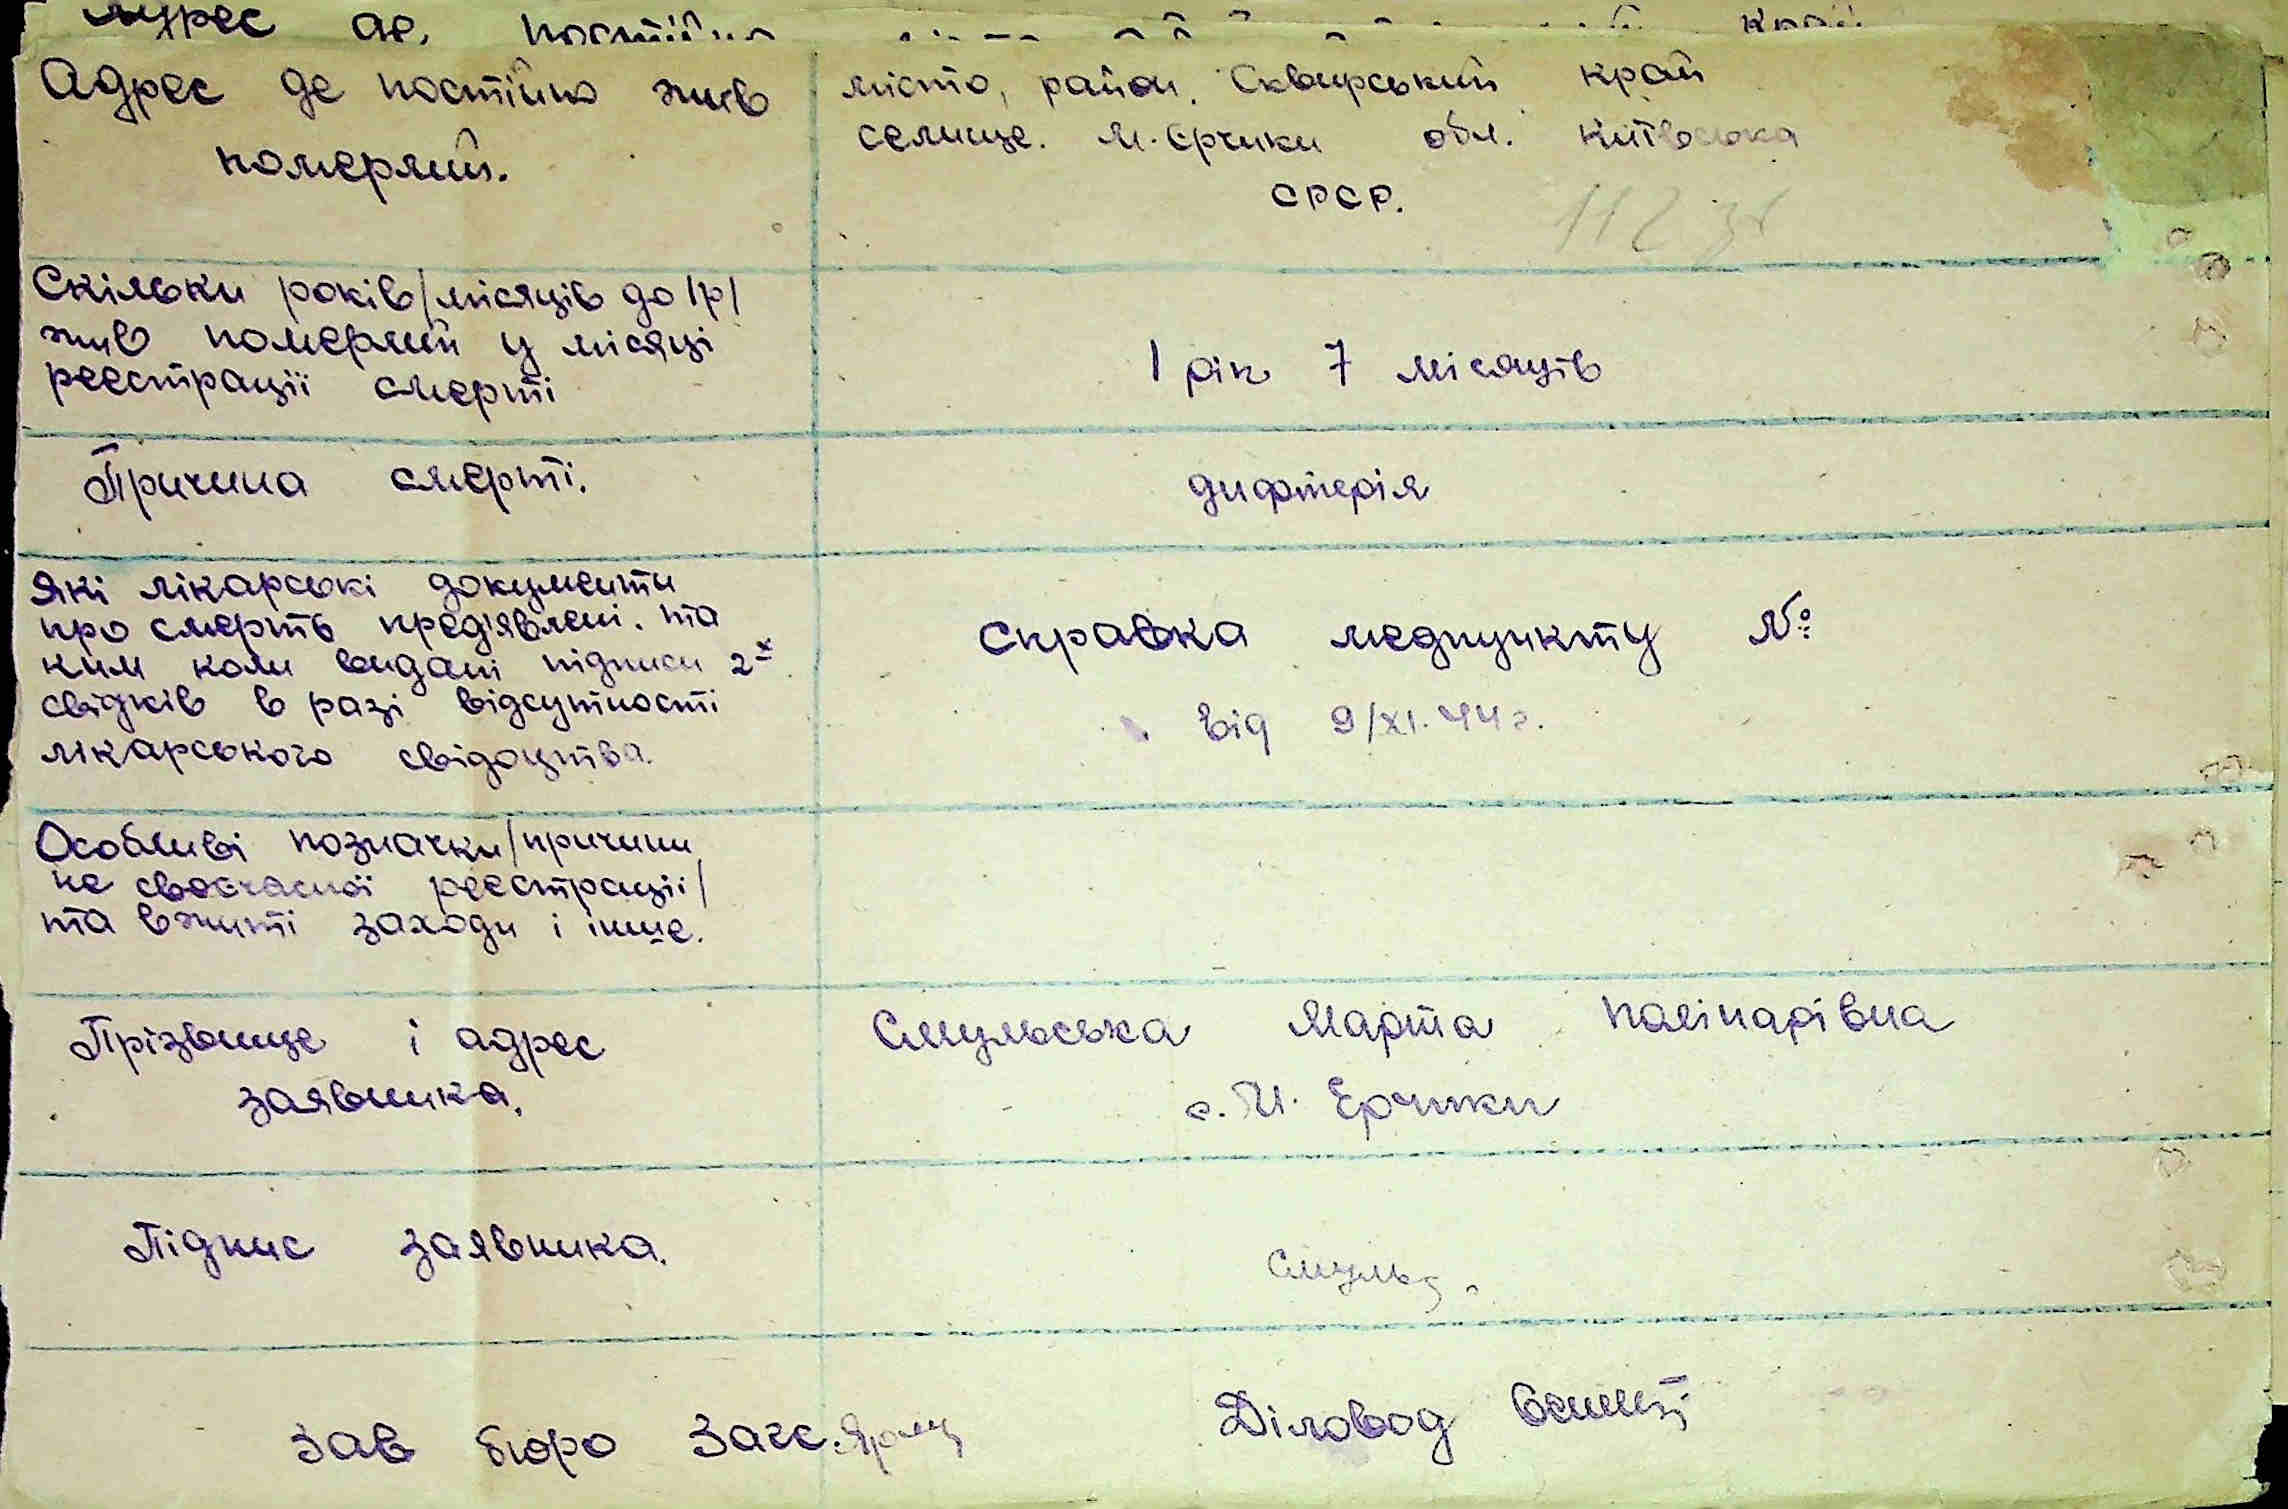 Адрес де постійно
Адрес де постійно жив
померлий.
місто, район. Сквирський край
селище. М. Єрчики обл. Київська
СРСР.
Скільки років/місяців до /р/
жив померлий у місяці
реєстрації смерті
1 рік 7 місяців
Причина смерті.
дифтерія
Які лікарські документи
про смерть пред'явлені. та
ким коли видані підписи 2х
свідків в разі відсутності
лікарського свідоцтва.
Справка медпункту №
від 9/XI.44 г.
Особливі позначки/причини
не своєчасної реєстрації/
та вжиті заходи і інше.
Прізвище і адрес
заявника.
Смульська Марта
с. М. Єрчики
Підпис заявника.
Смульс
Зав бюро Загс.
Діловод